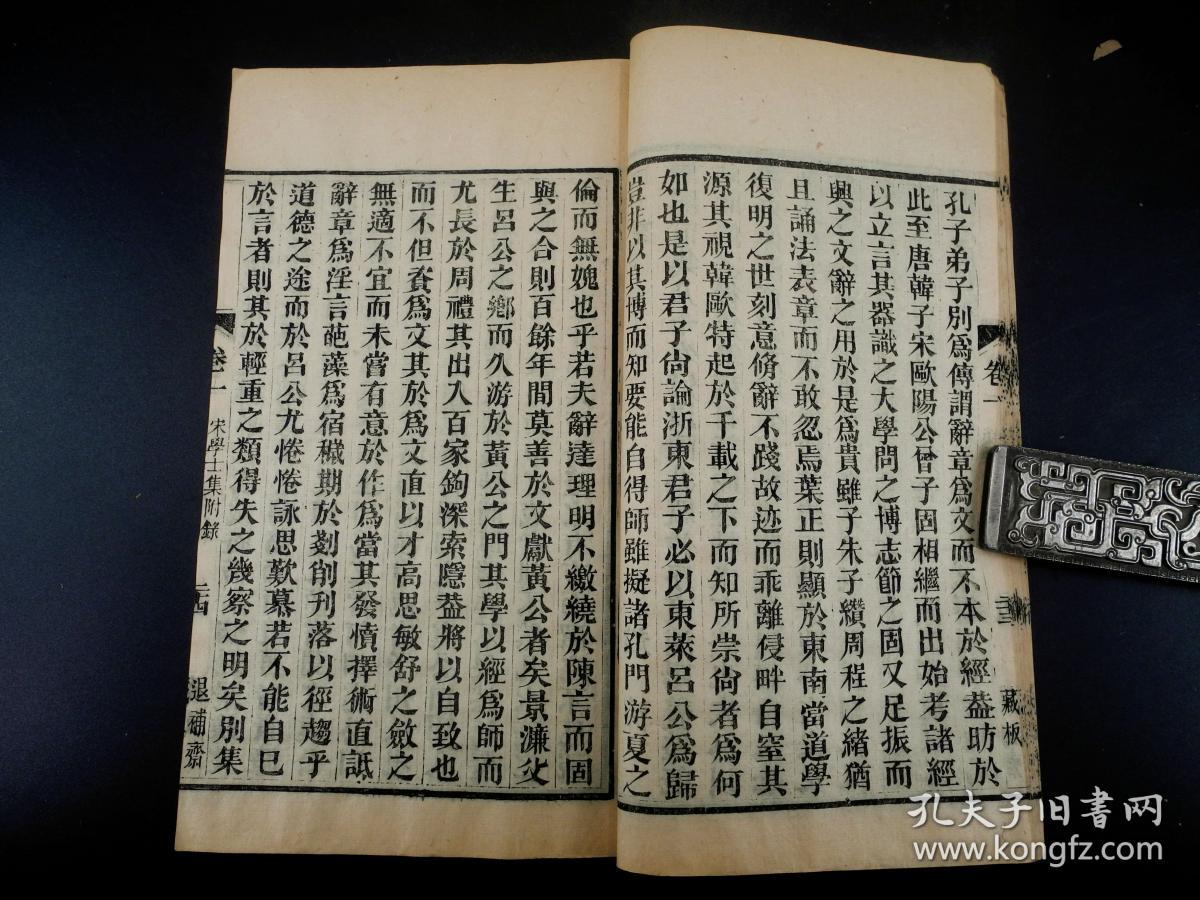 孔子弟子別爲傳謂辭章爲文而不本於經葢昉於
此至唐韓子宋歐陽公曾子固相繼而出始考諸經
以立言其器識之大學問之博志節之固又足振而
興之文辭之用於是爲貴雖子朱子纘周程之緖猶
且誦法表章而不敢忽焉葉正則顯於東南當道學
復明之世刻意脩辭不踐故迹而乖離侵畔自窒其
源其視韓歐特起於千載之下而知所崇尙者爲何
如也是以君子尙論浙東君子必以東萊呂公爲歸
豈非以其博而知要能自得師雖擬諸孔門游夏之
卷一
藏板
倫而無媿也乎若夫辭達理明不繳繞於陳言而固
與之合則百餘年間莫善於文獻黃公者矣景濂父
生呂公之鄉而久游於黃公之門其學以經爲師而
尤長於周禮其出入百家鉤深索隱葢將以自致也
而不但資爲文其於爲文直以才高思敏舒之斂之
無適不宜而未嘗有意於作爲當其發憤擇術直詆
辭章爲淫言葩藻爲宿穢期於剗削刋落以徑趨乎
道德之途而於呂公尤惓惓詠思歎慕若不能自已
於言者則其於輕重之類得失之幾察之明矣別集
卷一
宋學士集附錄
二四
退補齋
孔夫子旧书网
www.kongfz.com